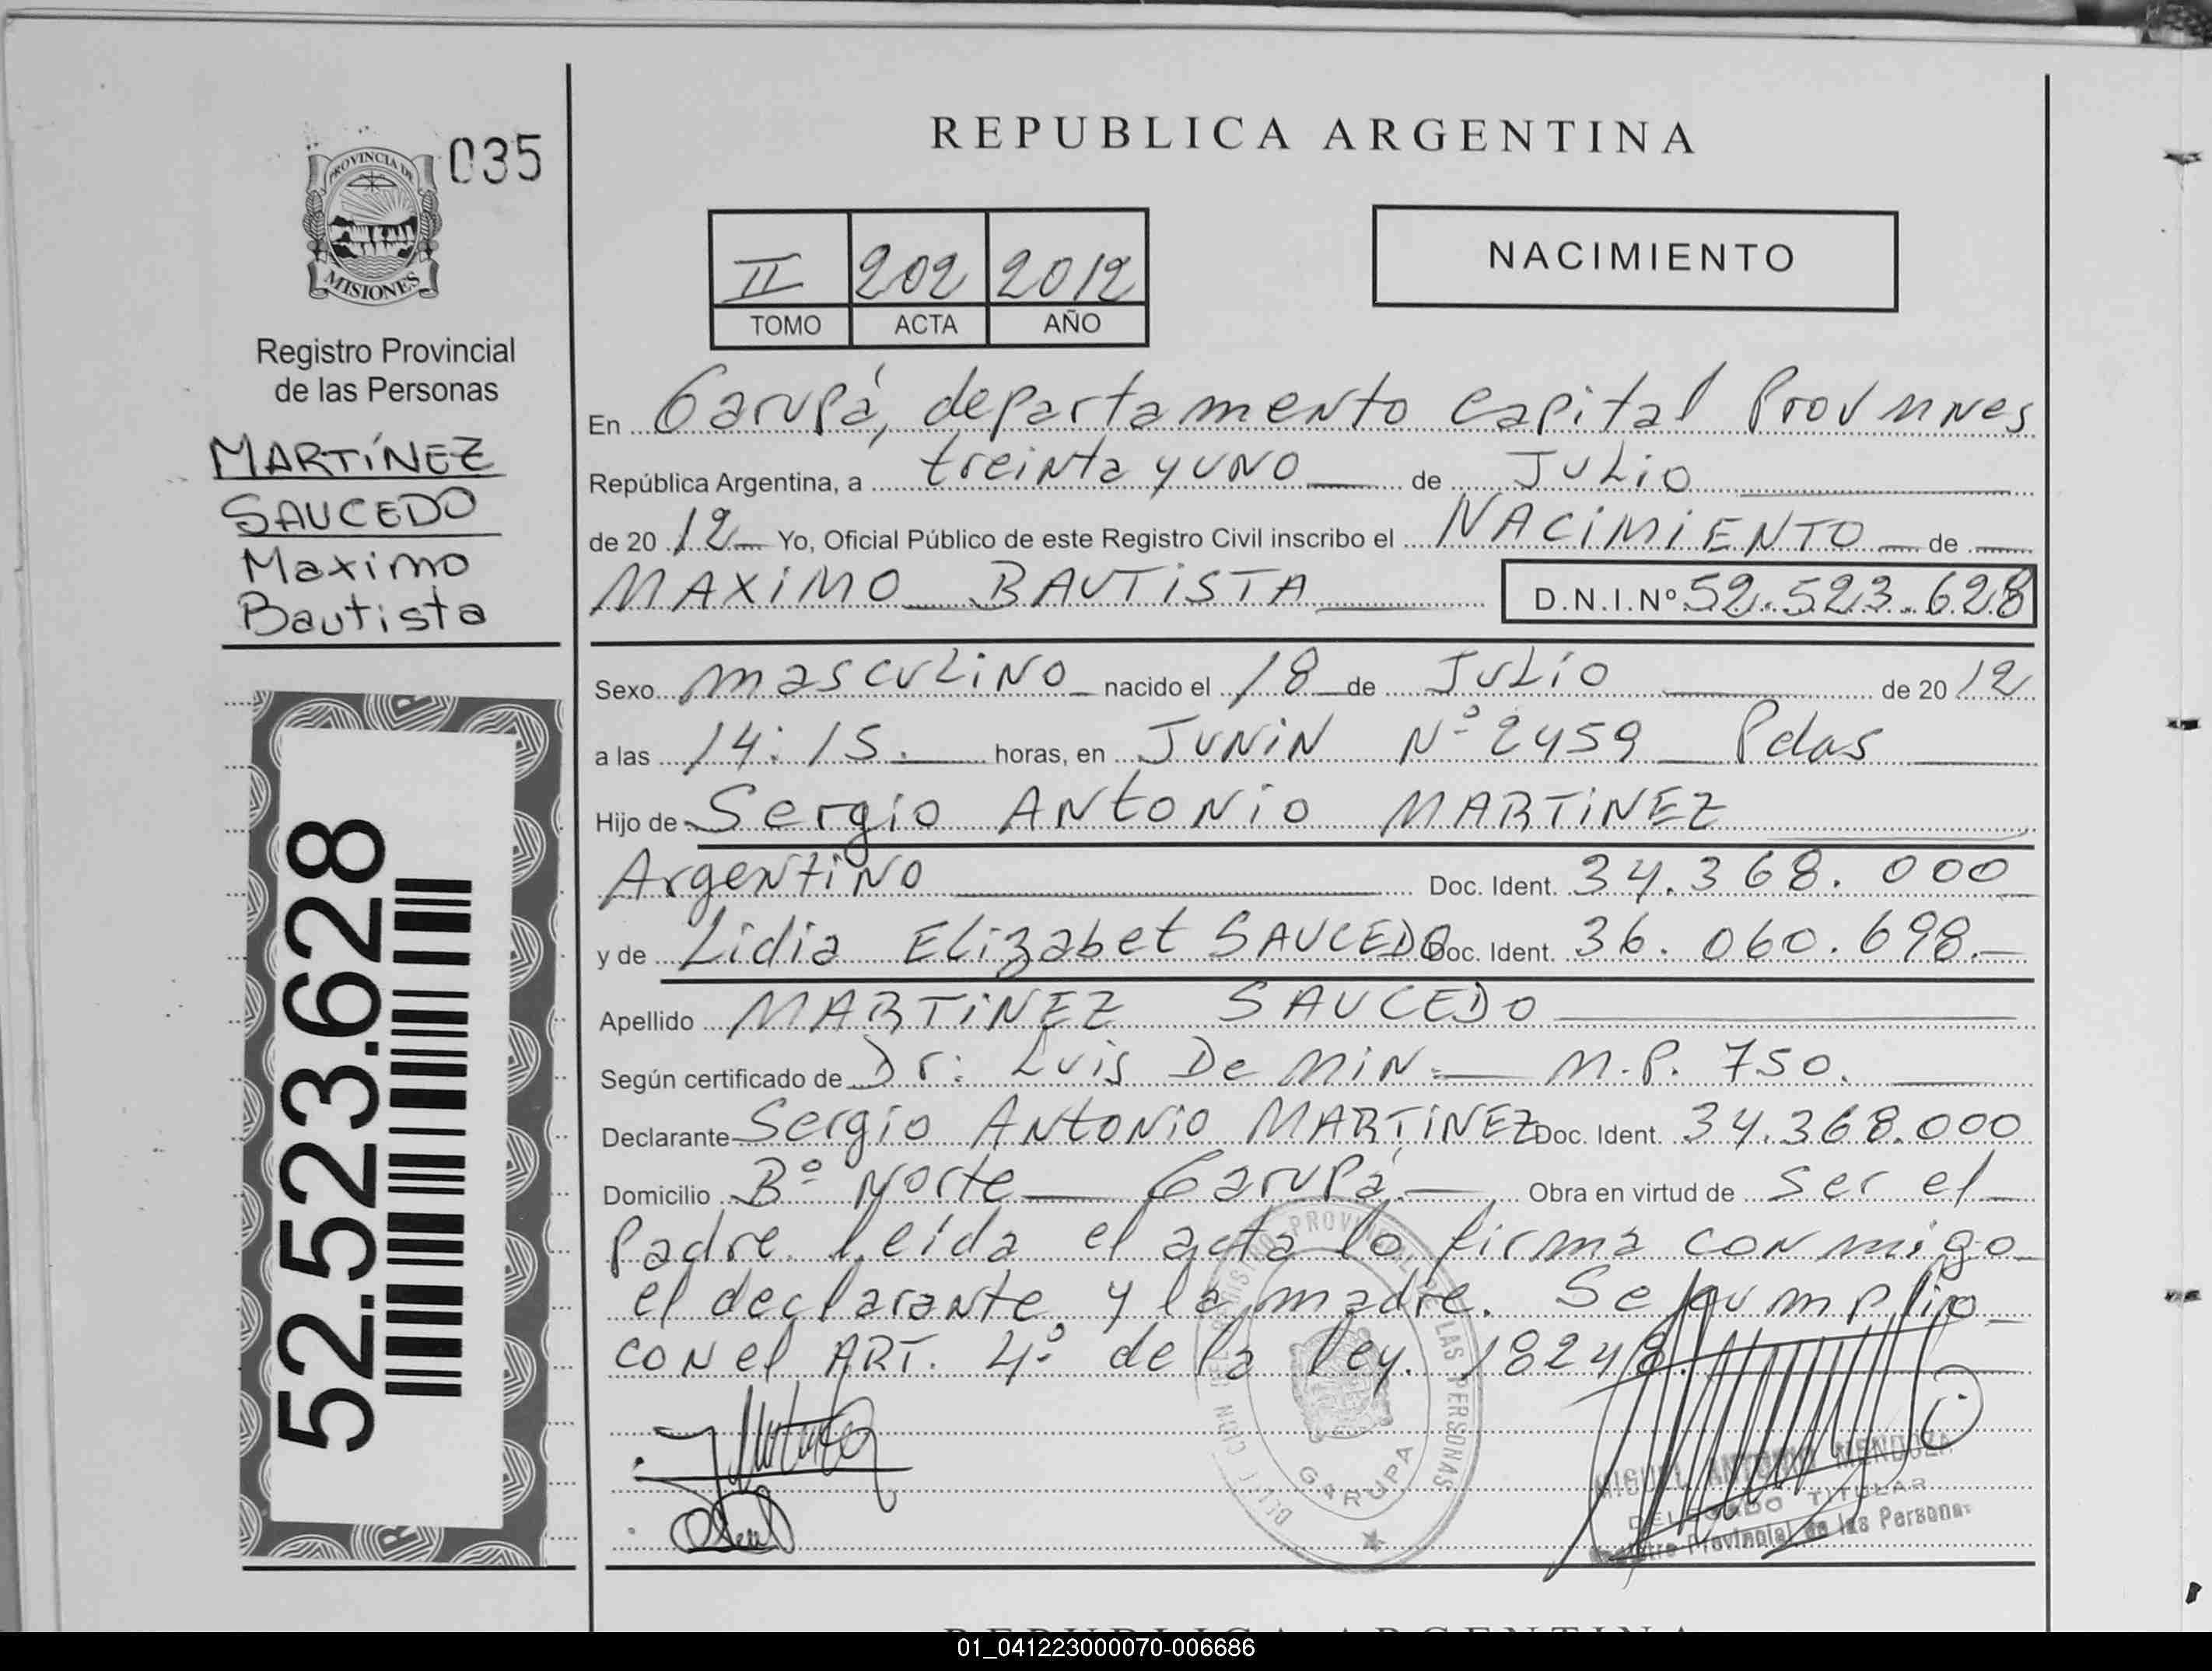 035
PROVINCIA DE
MISIONES
Registro Provincial
de las Personas
MARTÍNEZ
SAUCEDO
Maximo
Bautista
52.523.628
REPUBLICA ARGENTINA
II 202 2012
TOMO ACTA AÑO
NACIMIENTO
En Garupá, departamento capital Prov Mnes
República Argentina, a treinta y uno de Julio
de 20 12 Yo, Oficial Público de este Registro Civil inscribo el NACIMIENTO de
MAXIMO BAUTISTA D.N.I.Nº 52.523.628
Sexo masculino nacido el 18 de Julio de 20 12
a las 14:15. horas, en JUNIN Nº 2459 Pdas
Hijo de Sergio Antonio MARTINEZ
Argentino Doc. Ident. 34.368.000
y de Lidia Elizabet SAUCEDO Doc. Ident. 36.060.698.
Apellido MARTINEZ SAUCEDO
Según certificado de Dr: Luis De Min. M.P. 750.
Declarante Sergio Antonio MARTINEZ Doc. Ident. 34.368.000
Domicilio Bº Norte Garupá. Obra en virtud de ser el
Padre. leída el acta lo firma conmigo
el declarante y la madre. Se cumplio
con el ART. 4º de la ley. 18248.
GARUPA
MIGUEL ANTONIO MENDOZA
DELEGADO TITULAR
Registro Provincial de las Personas
REPUBLICA ARGENTINA
01_041223000070-006686